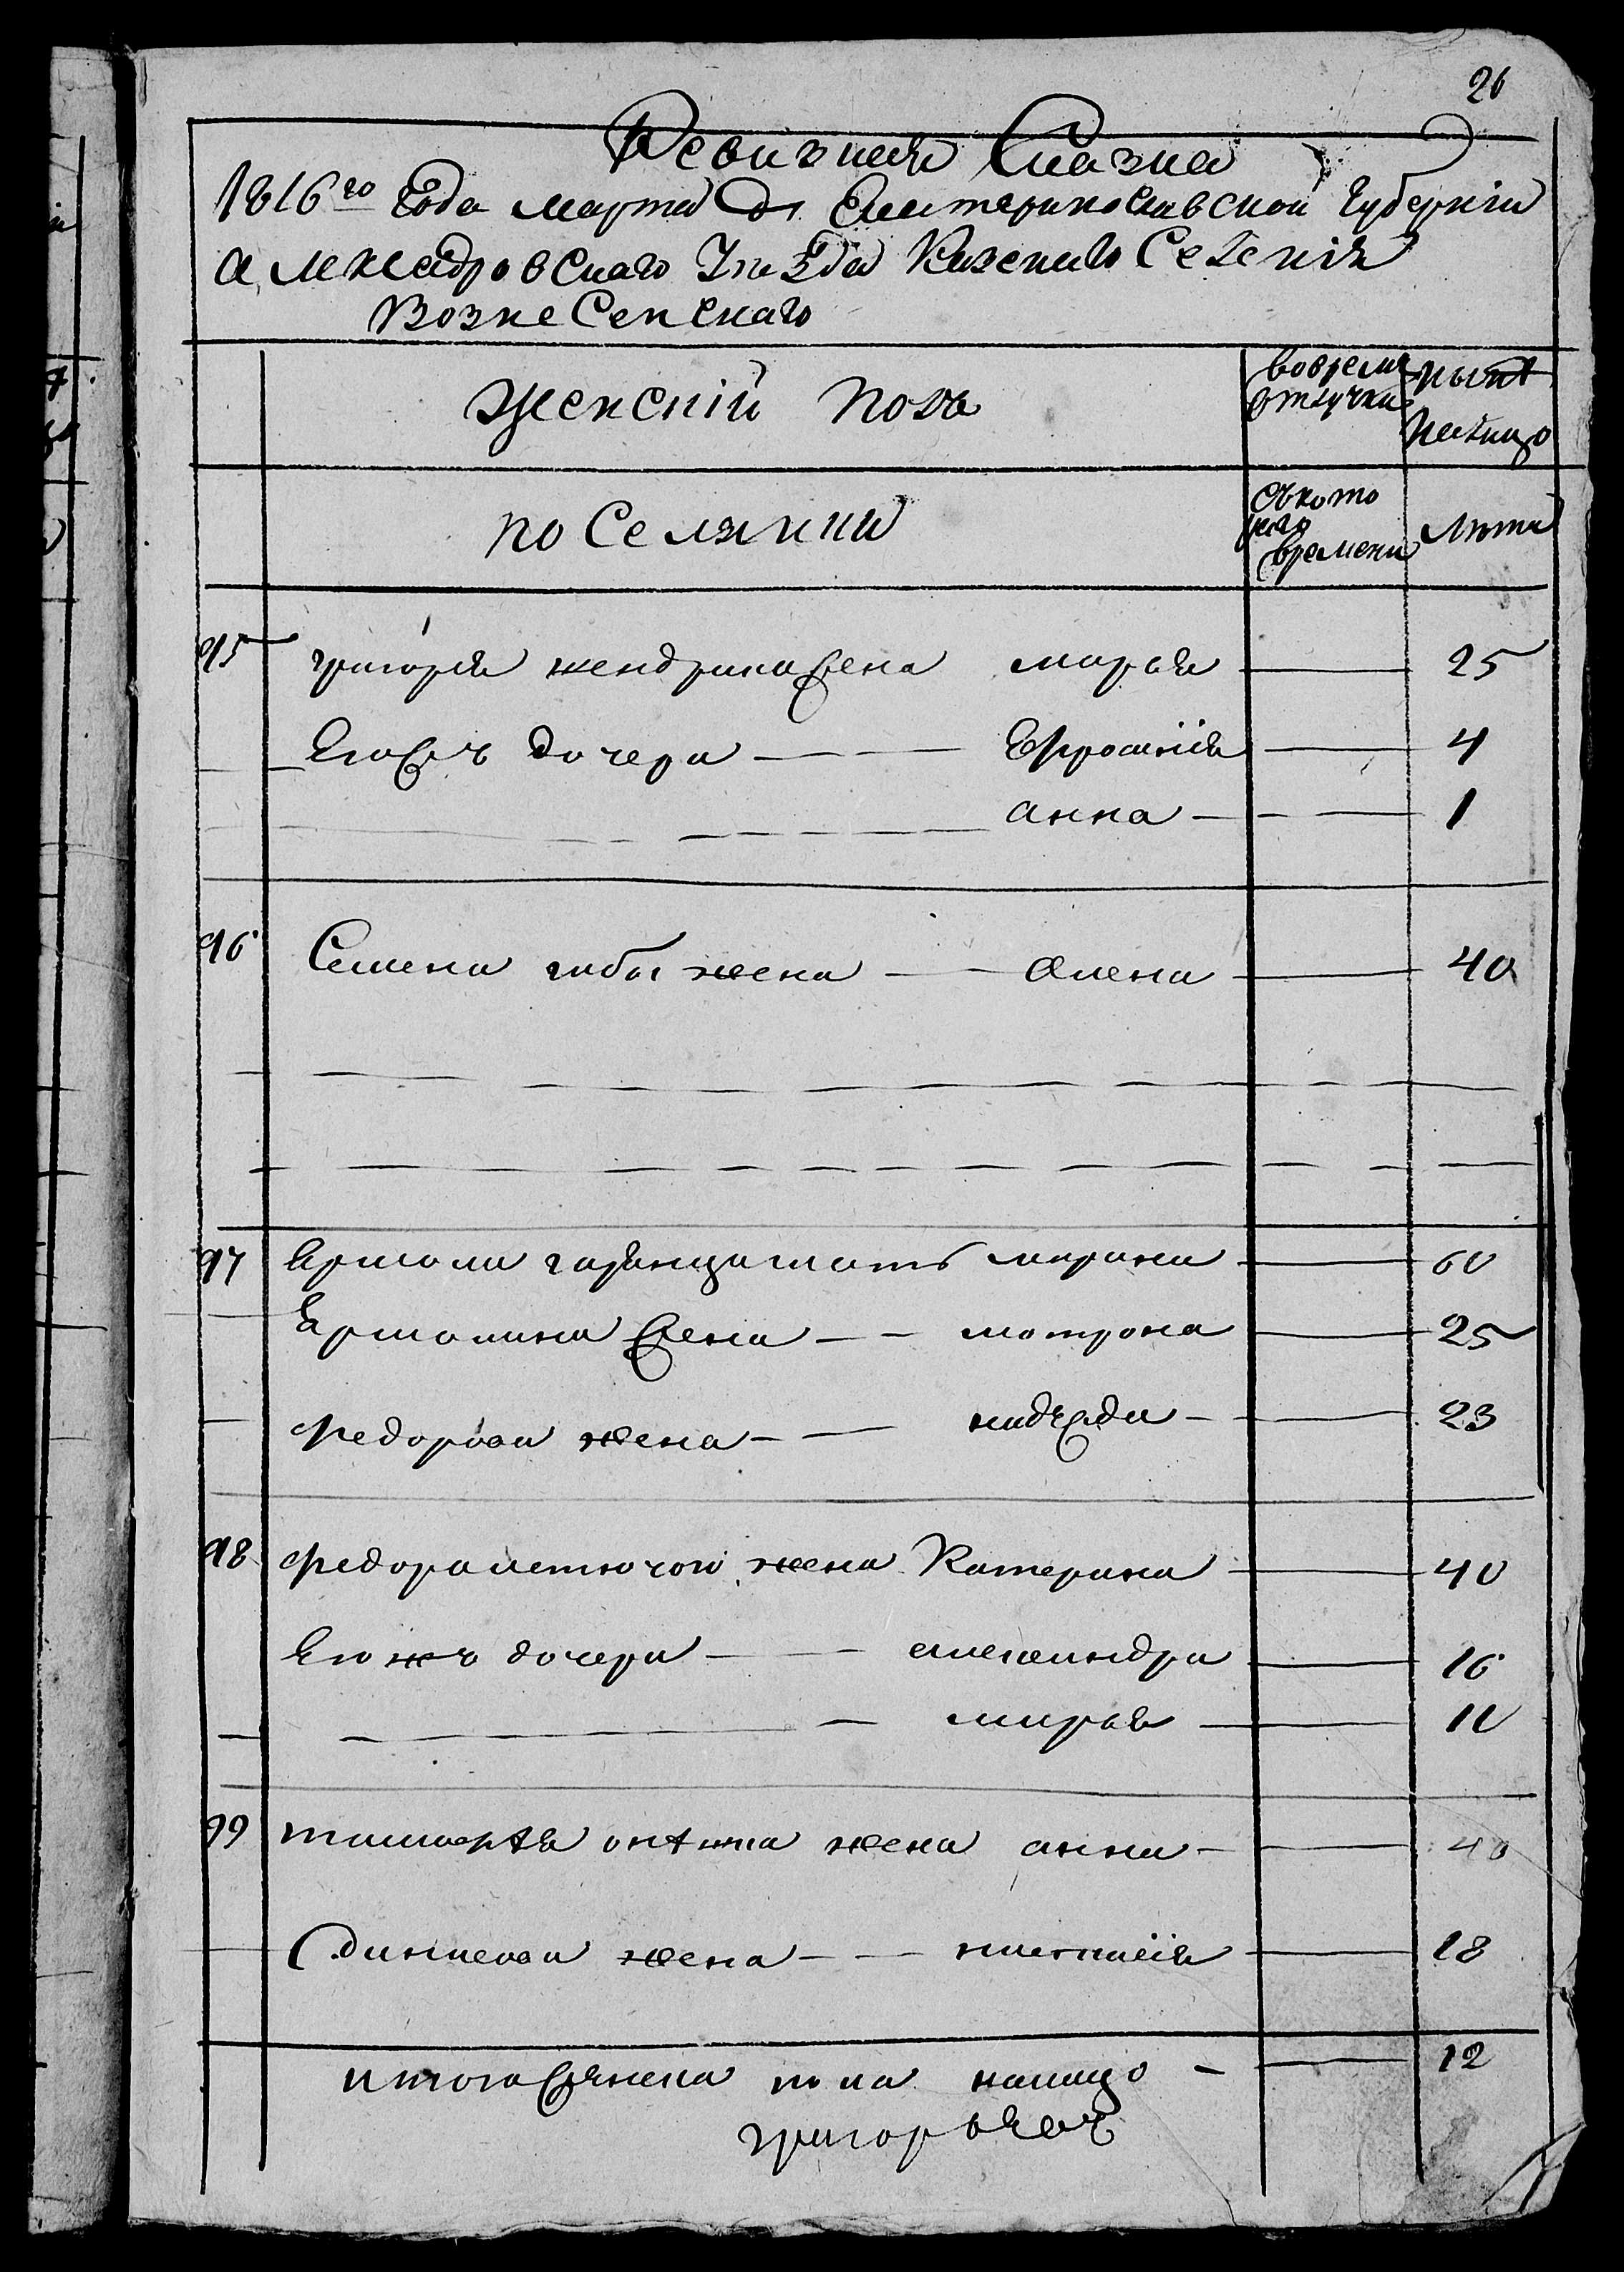 26
Ревизкая Сказка
1816го Года марта д. Екатеринославской Губернии
Александровскаго Уезда Казенаго Селения
Вознесенскаго
Женский полъ
вовремя отлучки
ныне налицо
поселянки
съкото раго времени
лета
95 григория жена марья 25
Егожъ дочери Ефросиния 4
анна 1
96 Семена жена Алена 40
97 Ермола мать марина 60
Ермолина жена мотрона 25
Федорова жена надежда 23
98 Федора жена Катерина 40
Егожъ дочери александра 16
марья 10
99 тимофея жена анна 40
жена 18
итого женска пола налицо 12